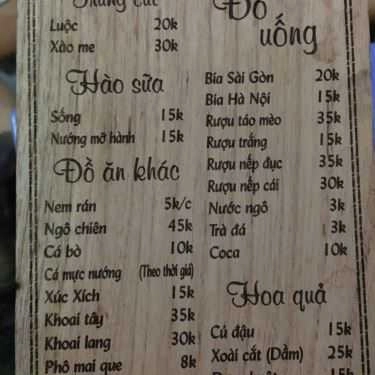 Luộc 20k
Xào me 30k
Hào sữa
Sống 15k
Nướng mỡ hành 15k
Đồ ăn khác
Nem rán 5k/c
Ngô chiên 45k
Cá bò 10k
Cá mực nướng (Theo thời giá)
Xúc Xích 15k
Khoai tây 35k
Khoai lang 30k
Phô mai que 8k
Đồ uống
Bia Sài Gòn 20k
Bia Hà Nội 15k
Rượu táo mèo 35k
Rượu trắng 15k
Rượu nếp đục 35k
Rượu nếp cái 30k
Nước ngô 3k
Trà đá 3k
Coca 10k
Hoa quả
Củ đậu 15k
Xoài cắt (Dầm) 25k